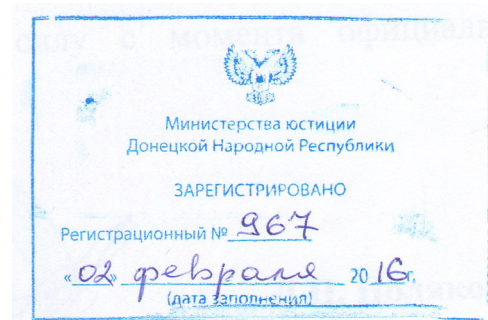 силу с момента официаль
Министерства юстиции
Донецкой Народной Республики
ЗАРЕГИСТРИРОВАНО
Регистрационный № 967
«02» февраля 2016г,
(дата заполнения)